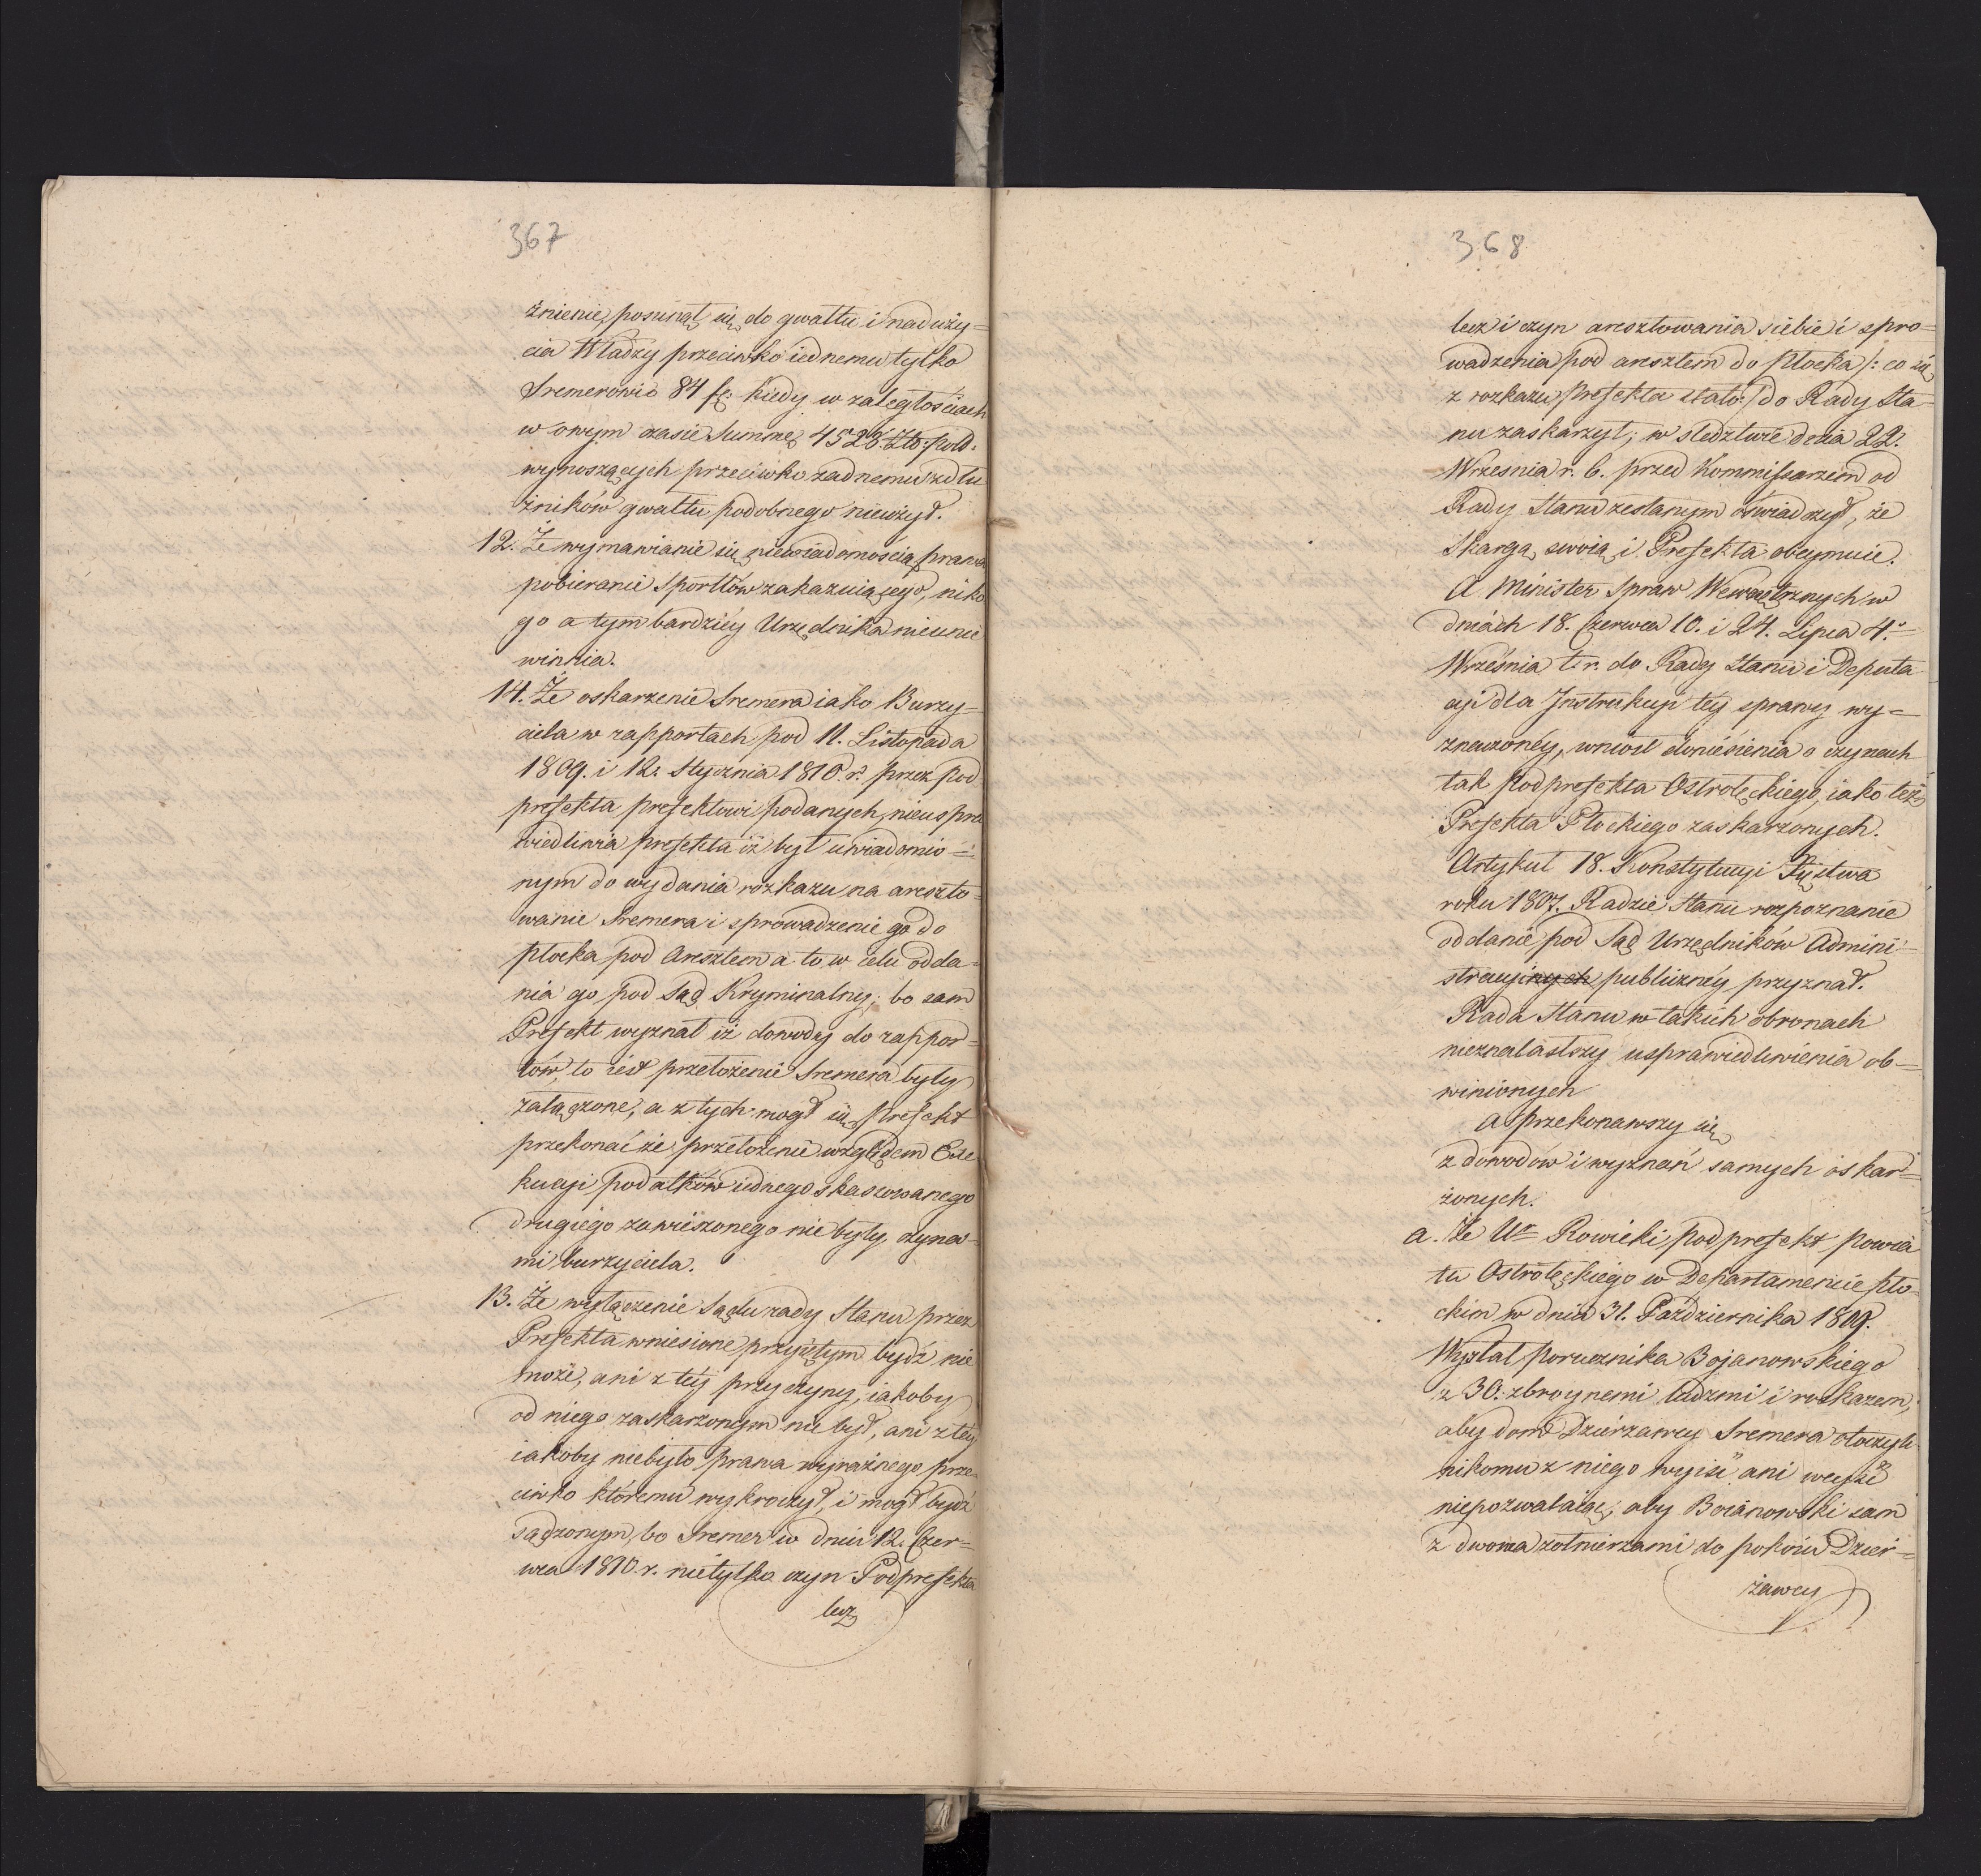 367
żnienie, posunął się do gwałtu i naduży=
cia Władzy przeciwko iednemu tylko
Sremerowi o 84 f: kiedy w zaległościach
w owym czasie Summę 4528. Zło: pold:
wynoszących przeciwko żadnemu z dłu
żników gwałtu podobnego nieużył.
12. Że wymawianie się niewiadomością prawa
pobieranie Sportlów zakazuiącego, niko
go a tym bardziéy Urzędnika nieunie
winnia.
14. Że oskarzenie Sremera iako Burzy=
ciela w rapportach pod 11. Listopada
1809. i 12. Stycznia 1810. r. przez Pod
prefekta prefektowi podanych, nieuspra
wiedliwia prefekta iż był uwiadomio=
nym do wydania rozkazu na areszto=
wanie Sremera i sprowadzenie go do
Płocka pod Aresztem a to w celu odda=
nia go pod Sąd Kryminalny; bo sam
Prefekt wyznał iż dowody do rappor=
tów, to iest przełożenie Sremera były
załączone, a z tych mógł się Prefekt
przekonać że przełożenie względem Exe
kucyi podatków iednego skassowanego
drugiego zawieszonego nie były czyna=
mi burzyciela.
13. Że wyłączenie Sądu rady Stanu przez
Prefekta wniesione przyiętym bydź nie
może, ani z téy przyczyny, iakoby
od niego zaskarżonym nie był, ani z téy
iakoby niebyło prawa wyraźnego prze=
ciwko któremu wykroczył, i mógł bydź
sądzonym, bo Sremer w dniu 12. Czer=
wca 1810. r. nietylko czyn Podprefekta
lecz
368
lecz i czyn aresztowania siebie i spro=
wadzenia pod aresztem do Płocka /: co się
z rozkazu Prefekta stało :/ do Rady Sta=
nu zaskarżył; w śledztwie dnia 22.
Wrzesnia r. b. przed Kommissarzem od
Rady Stanu zesłanym oświadczył, że
Skargą swoią i Prefekta obeymuie.
A Minister Spraw Wewnętrznych w
dniach 18. Czerwca 10. i 24. Lipca 4.=
Września t. r. do Rady Stanu i Deputa
cyi dla Instrukcyi téy sprawy wy=
znaczonéy, wniosł doniesienia o czynach
tak Podprefekta Ostrołęckiego, iako też
Prefekta Płockiego zaskarżonych.
Artykuł 18. Konstytucyi Xięstwa
roku 1807. Radzie Stanu rozpoznanie
oddanie pod Sąd Urzędników Admini=
stracyinych publicznéy przyznał.
Rada Stanu w takich obronach
nieznalasłszy usprawiedliwienia ob=
winionych
a przekonawszy się
z dowodów i wyznań samych oskar=
żonych.
a. Że Ur Rowicki Podprefekt Powia
tu Ostrołęckiego w Departamencie Pło=
ckim w dniu 31. Października 1809.
Wysłał Porucznika Bojanowskiego
z 30. zbroynemi ludzmi i rozkazem,
aby dom Dzierżawcy Sremera otoczyli
nikomu z niego wyiść ani weyść
niepozwalaiąc; aby Boianowski sam
z dwoma żołnierzami do pokoiu Dzier=
żawcy